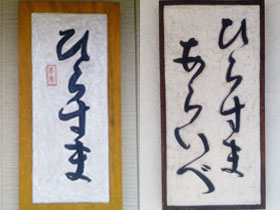 ひらすま
ひらすま
あらいべ